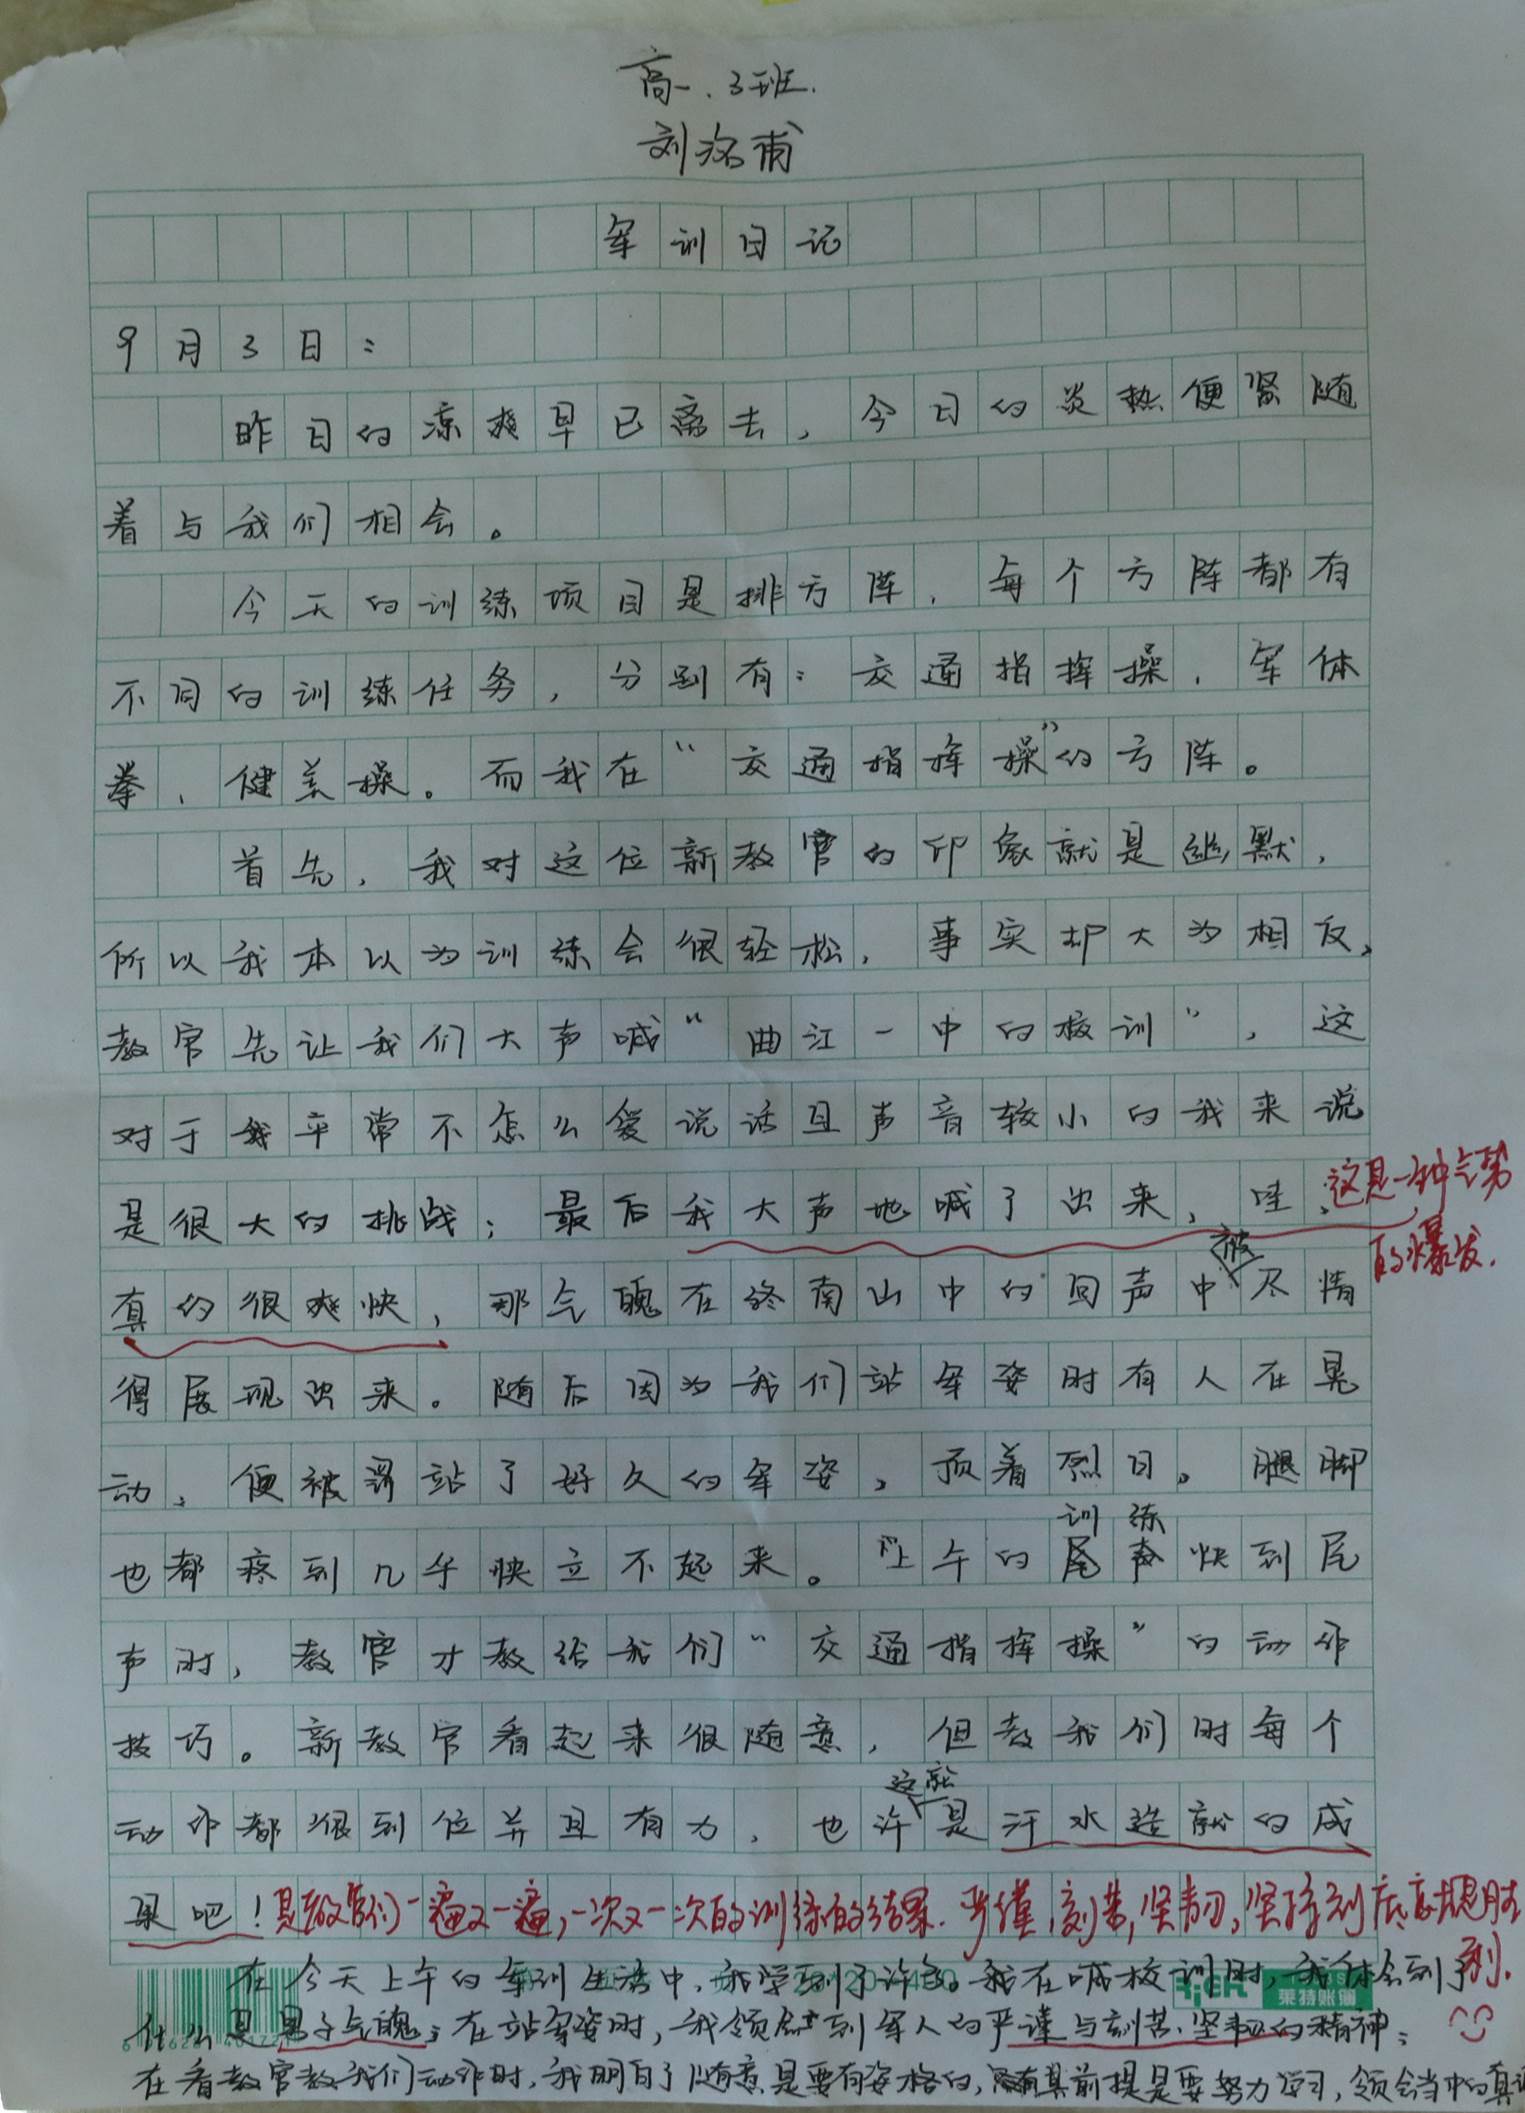 高一.3班.
刘洺甫
军训日记
9月3日:
昨日的凉爽早已离去,今日的炎热便紧随
着与我们相会。
今天的训练项目是排方阵,每个方阵都有
不同的训练任务,分别有:交通指挥操、军体
拳、健美操。而我在“交通指挥操”的方阵。
首先,我对这位新教官的印象就是幽默,
所以我本以为训练会很轻松,事实却大为相反,
教官先让我们大声喊“曲江一中的校训”,这
对于我平常不怎么爱说话且声音较小的我来说
是很大的挑战;最后我大声地喊了出来,哇,
这是一种气势
的爆发.
真的很爽快,那气魄在终南山中的回声中被尽情
得展现出来。随后因为我们站军姿时有人在晃
动,便被罚站了好久的军姿,顶着烈日。腿脚
也都疼到几乎快立不起来。上午的训练快到尾
声时,教官才教给我们“交通指挥操”的动作
技巧。新教官看起来很随意,但教我们时每个
动作都很到位并且有力,也许这就是汗水造就的成
果吧!
是教官们一遍又一遍,一次又一次的训练的结果.严谨,刻苦,坚韧,坚持到底
在今天上午的军训生活中,我学到了许多。我在喊校训时,我体会到了
什么是男子气魄;在站军姿时,我领会到军人的严谨与刻苦、坚韧的精神;
在看教官教我们动作时,我明白了随意是要有资格的,其前提是要努力学习,领会当中的真
莱特账簿